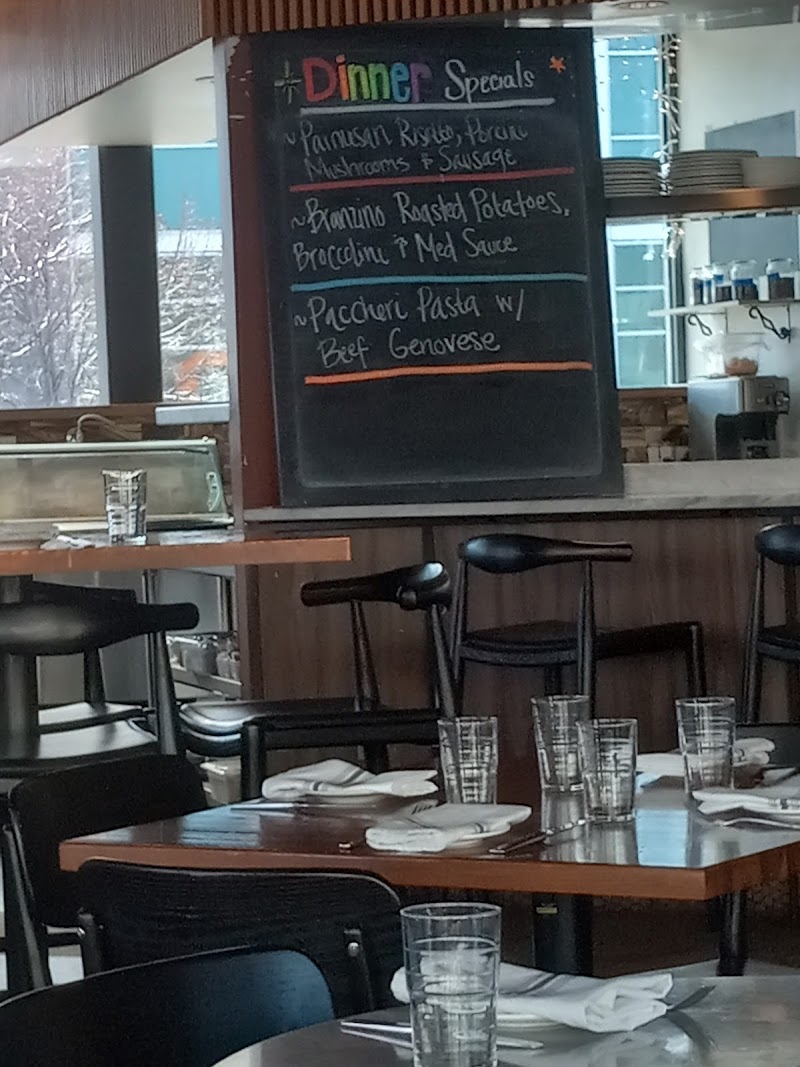 Dinner Specials
~Parmesan Risotto, Porcini
Mushrooms & Sausage
~Branzino Roasted Potatoes,
Broccolini & Med Sauce
~Paccheri Pasta w/
Beef Genovese